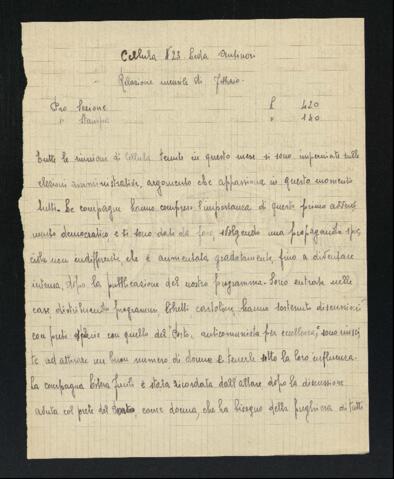 Cellula N 23 Leda Antinori
Relazione mensile di Febbraio.
Pro Sezione £ 420
" Stampa " 140
Tutte le riunioni di cellula tenute in questo mese si sono imperniate sulle
elezioni amministrative, argomento che appassiona in questo momento
tutti. Le compagne hanno compreso l'importanza di questo primo avveni
mento democratico e si sono date da fare, svolgendo una propaganda spic
ciola non indifferente, che è aumentata gradatamente, fino a diventare
intensa, dopo la pubblicazione del nostro programma. Sono entrate nelle
case distribuendo programmi libretti cartoline, hanno sostenuto discussioni
con prete con quello del Porto, anticomunista per eccellenza, sono riusci
te ad attirare un buon numero di donne e tenerle sotto la loro influenza.
La compagna è stata ricordata dall'altare dopo la discussione
avuta col prete del Porto, come donna, che ha bisogno della preghiera di tutti